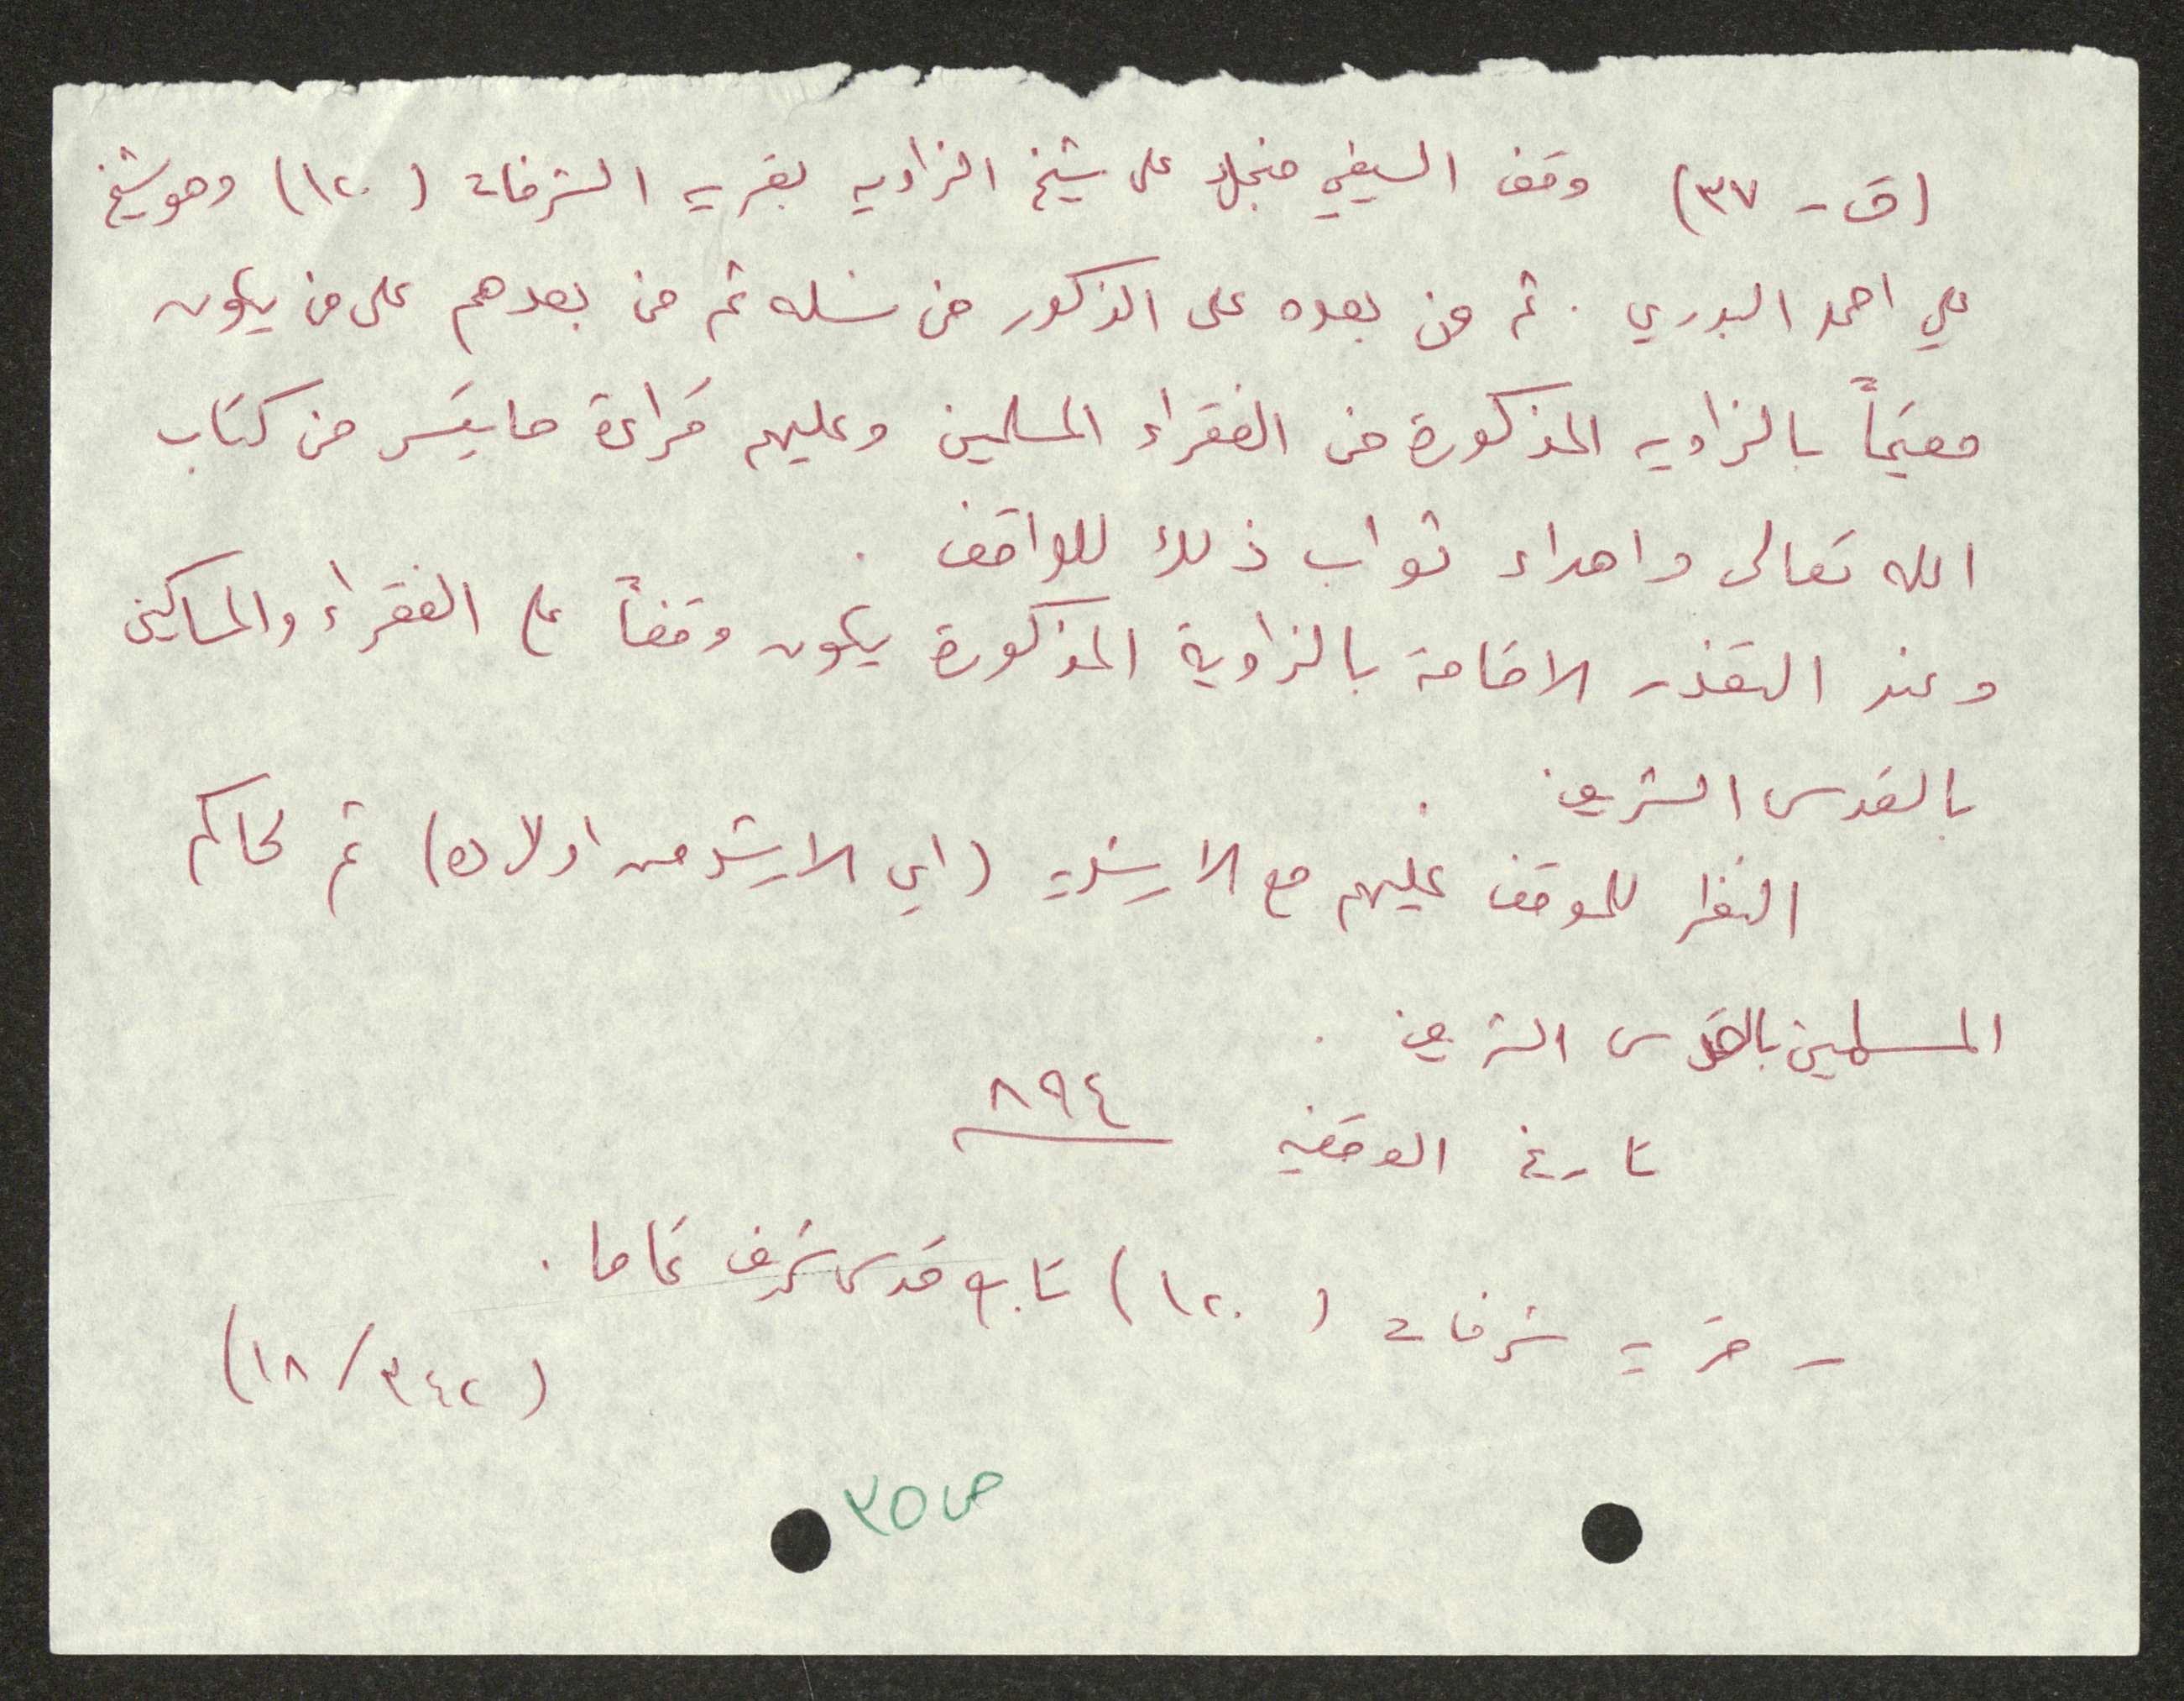 (ق - ٣٧) وقف السيفي منجك على شيخ الزاويه بقريه الشرفات (١٢٠) وهو شيخ
علي احمد البدري . ثم من بعده على الذكور من نسله ثم من بعدهم على من يكون
مقيماً بالزاويه المذكورة من الفقراء المسلمين وعليهم قراءة ما يتيسر من كتاب
الله تعالى واهداء ثواب ذلك للواقف .
وعند التعذر الاقامة بالزاوية المذكورة يكون وقفاً على الفقراء والمساكين
بالقدس الشريف .
النظر للموقف عليهم مع الارشديه (اي الارشد من اولاده) ثم لحاكم
المسلمين بالقدس الشريف .
تاريخ الوقفيه ٨٩٤
- قريه شرفات (١٢٠) تابع قدس شريف تماما .
(١٨/٣٤٢)
ص ٣٥